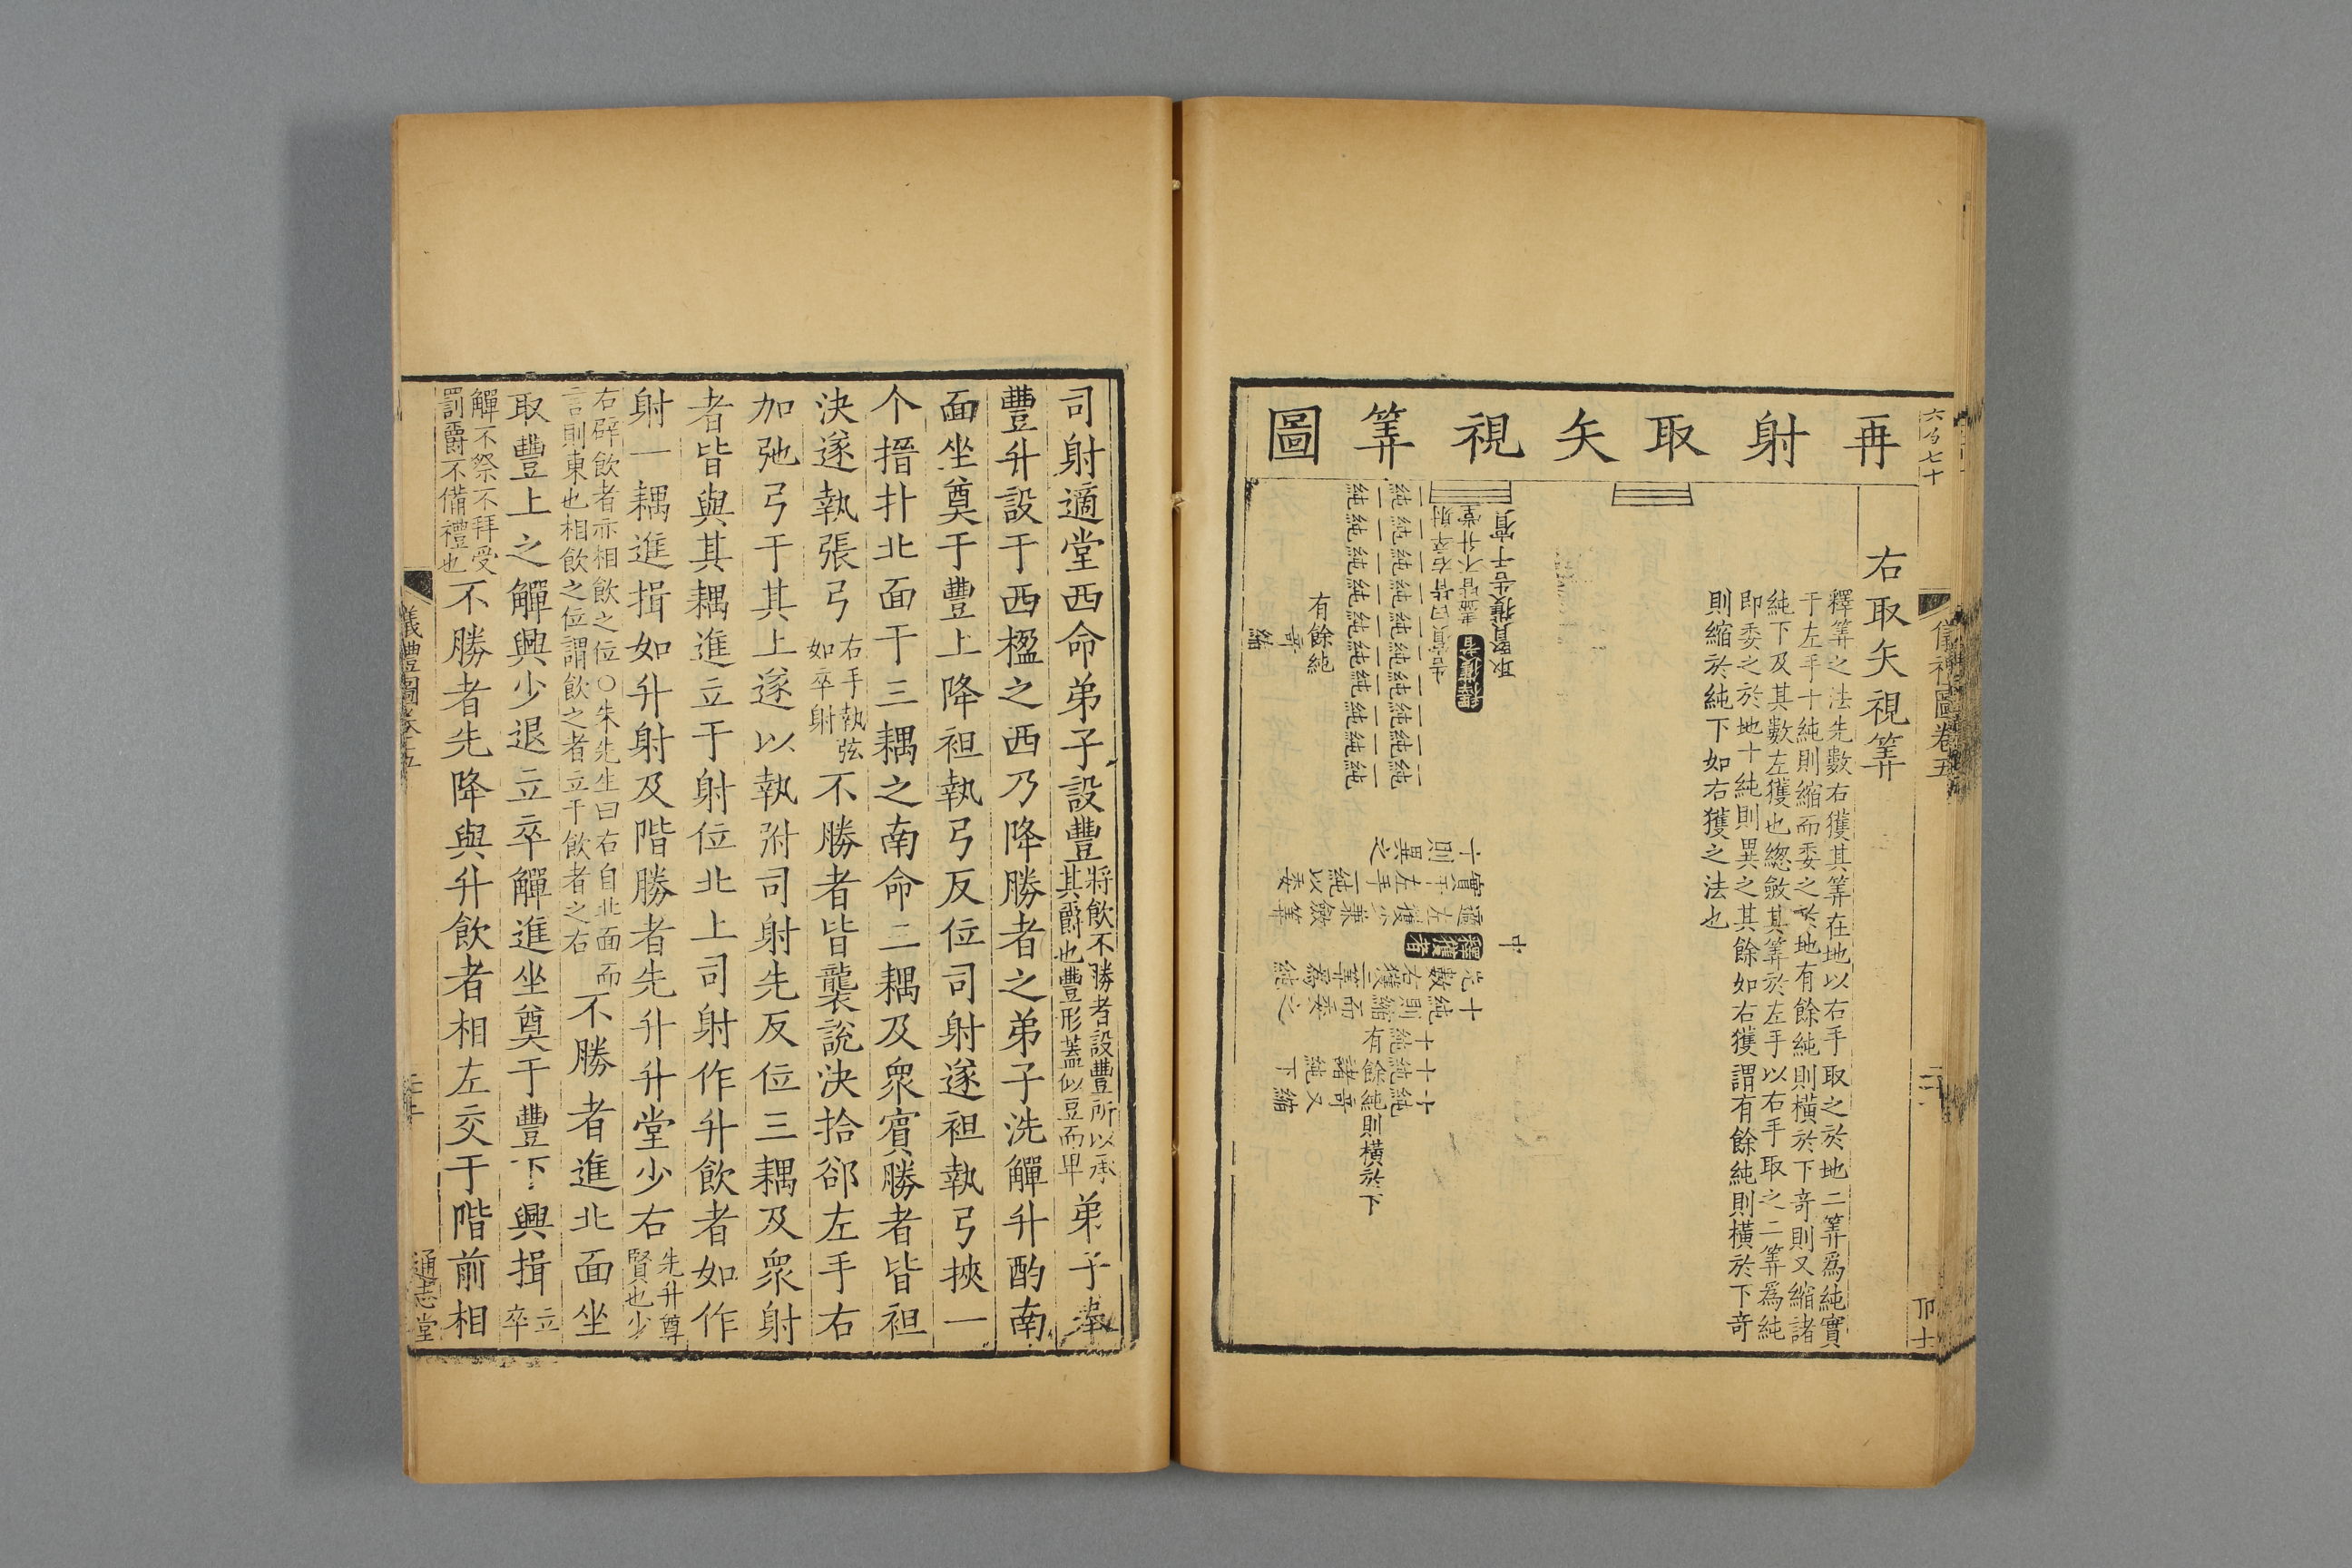 六百七十
儀禮圖卷五
再射取矢視筭圖
右取矢視筭
釋筭之法先數右獲其筭在地以右手取之於地二筭爲純實
于左手十純則縮而委之於地有餘純則橫於下奇則又縮諸
純下及其數左獲也緫斂其筭於左手以右手取之二筭爲純
即委之於地十純則異之其餘如右獲謂有餘純則橫於下奇
則縮於純下如右獲之法也
取賢獲告于賓
釋獲者
中
釋獲者
一純一純一純一純一純一純一純一純一純一純
純純純純純純純純純純
有餘純
奇
縮
十則異之
實于左手一純以委
適左獲少兼斂筭
先數右獲二筭爲純
十純則縮而委之
十純
十純
十純
有餘純則橫於下
奇又縮諸純下
司射適堂西命弟子設豐將飲不勝者設豐所以承其爵也豐形蓋似豆而卑弟子奉
豐升設于西楹之西乃降勝者之弟子洗觶升酌南
面坐奠于豐上降袒執弓反位司射遂袒執弓挾一
个搢扑北面于三耦之南命三耦及衆賓勝者皆袒
決遂執張弓右手執弦如卒射不勝者皆襲說決拾郤左手右
加弛弓于其上遂以執弣司射先反位三耦及衆射
者皆與其耦進立于射位北上司射作升飲者如作
射一耦進揖如升射及階勝者先升升堂少右先升尊賢也少
右辟飲者亦相飲之位○朱先生曰右自北面而言則東也相飲之位謂飲之者立于飲者之右不勝者進北面坐
取豐上之觶興少退立卒觶進坐奠于豐下興揖立卒
觶不祭不拜受罰爵不備禮也不勝者先降與升飲者相左交于階前相
儀禮圖卷五
通志堂